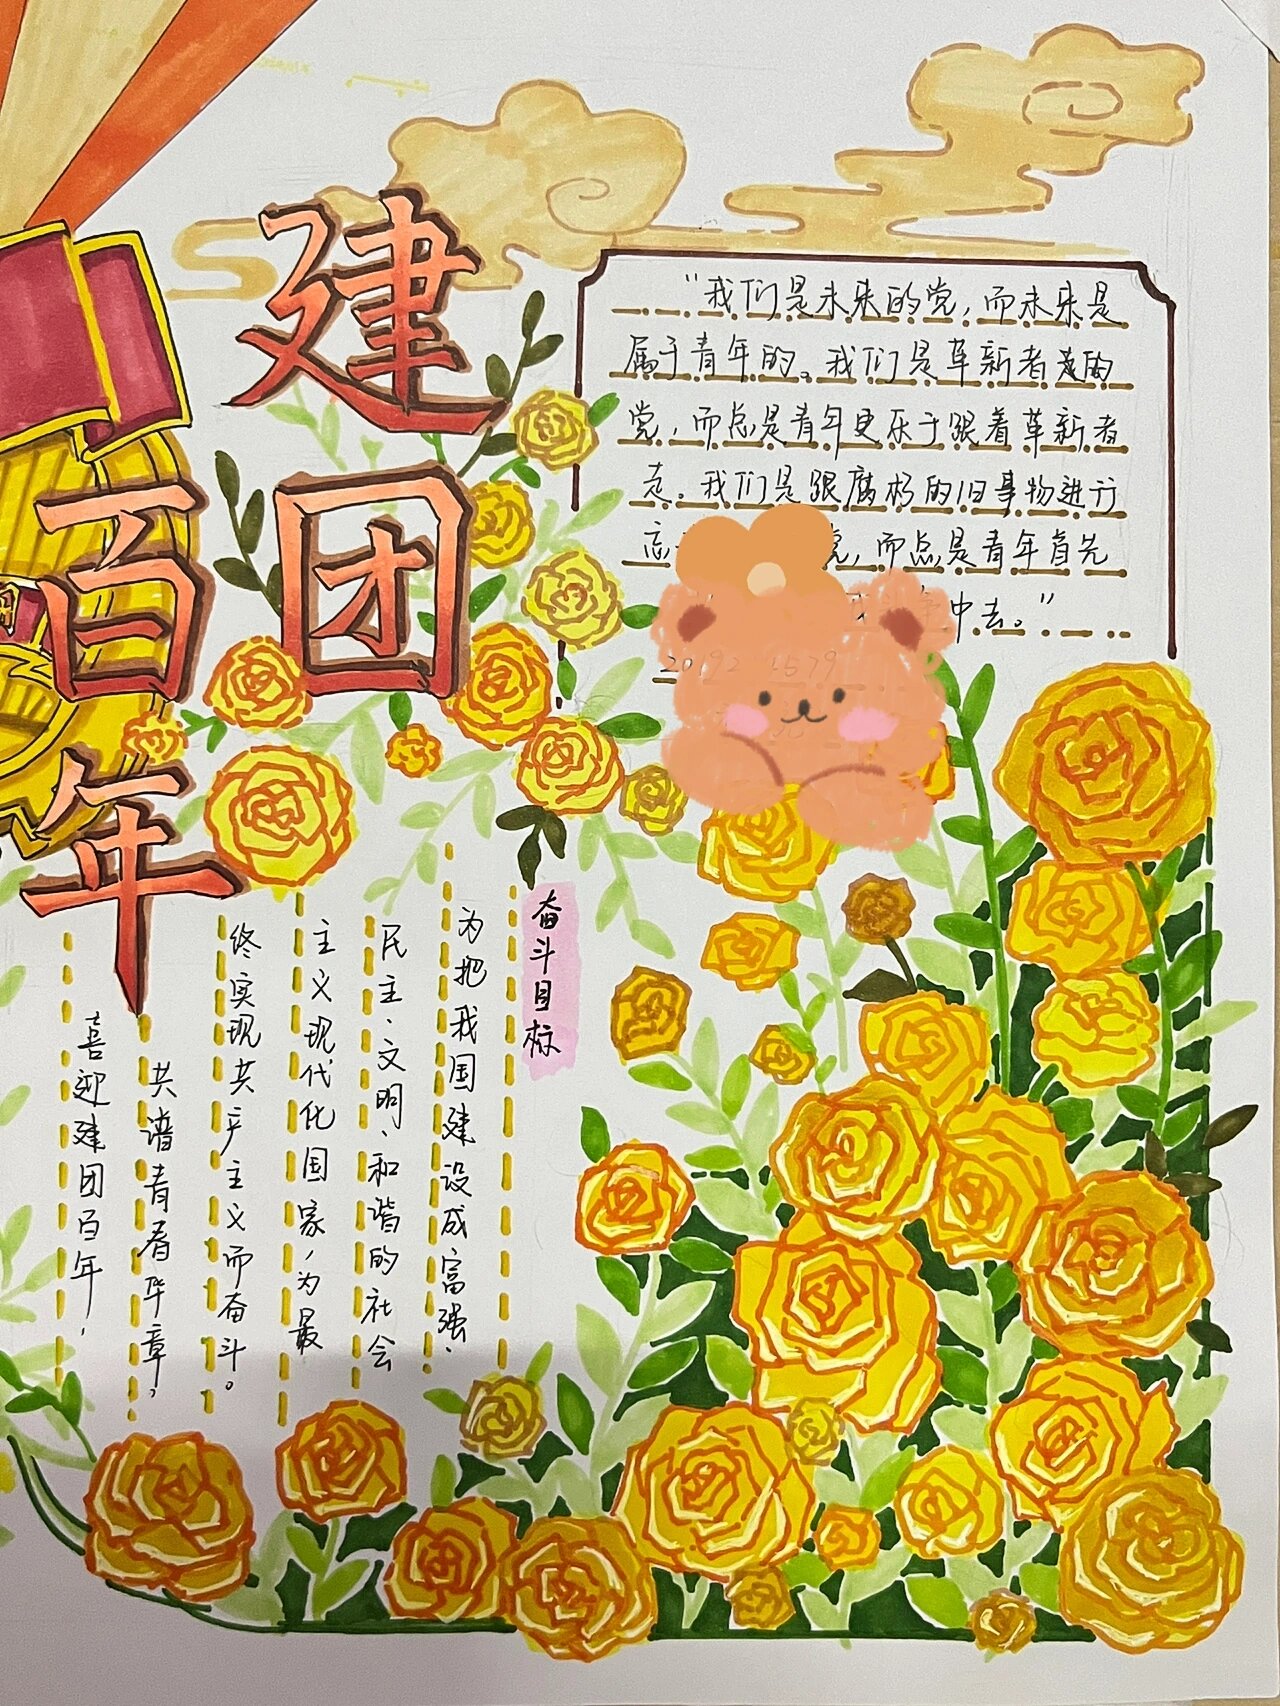 建团
百年
"我们是未来的党,而未来是
属于青年的。我们是革新者的
党,而总是青年更乐于跟着革新者
走。我们是跟腐朽的旧事物进行
而总是青年首先
中去。"
奋斗目标
为把我国建设成富强、
民主、文明、和谐的社会
主义现代化国家,为最
终实现共产主义而奋斗。
共谱青春华章,
喜迎建团百年,